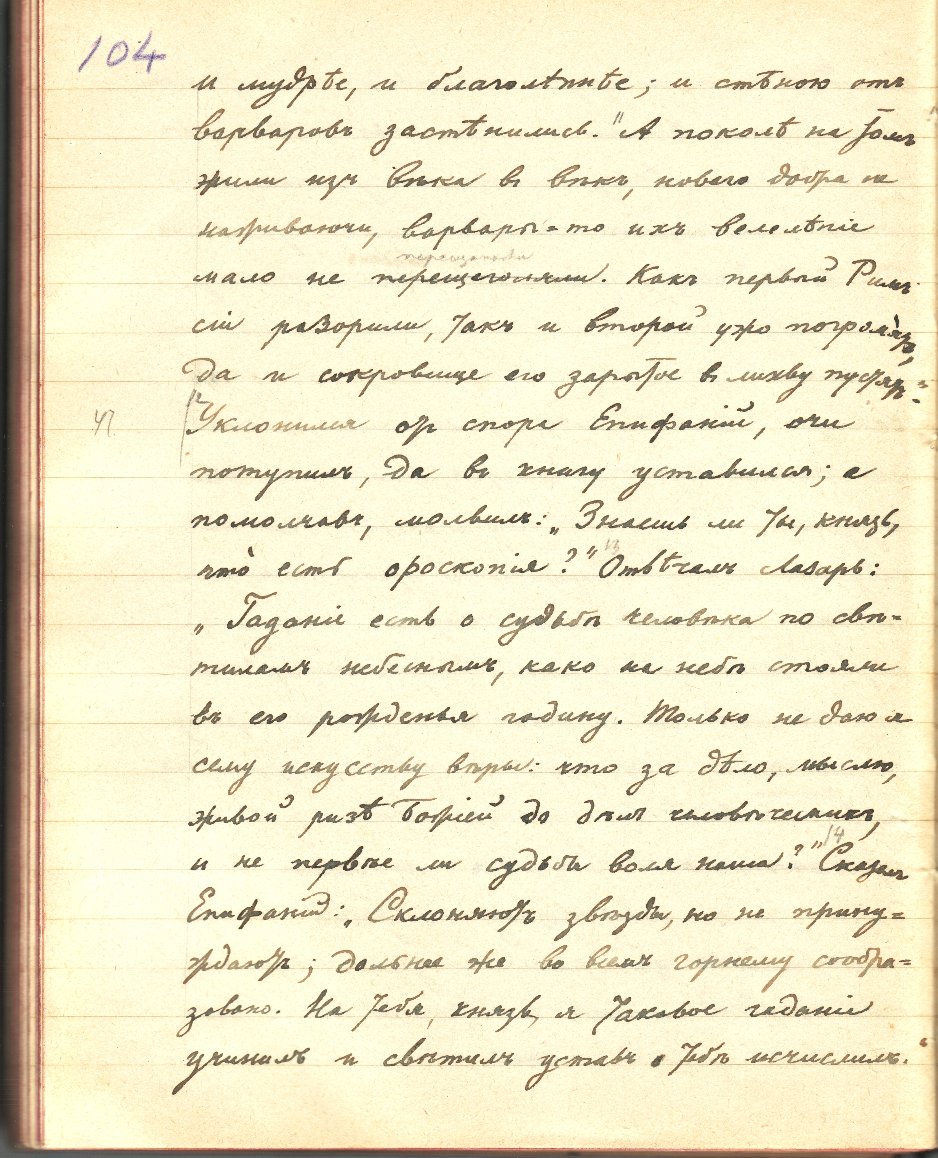 104
и мудрѣе, и благолѣпнѣе; и стѣною отъ
варваровъ застѣнились." А поколѣ на томъ
жили изъ вѣка въ вѣкъ, новаго добра не
наживаючи, варвары-то ихъ велелѣпіе
мало не перещеголяли. Какъ первый Римъ
сіи разорили, такъ и второй ужо погромятъ,
да и сокровище его зарытое въ лихву пустятъ."
Уклонился отъ спора Епифаній, очи
потупилъ, да въ книгу уставился; а
помолчавъ, молвилъ: „Знаешь ли ты, князь,
что̀ есть ороскопія?" 13 Отвѣчалъ Лазарь:
„Гаданіе есть о судьбѣ человѣка по свѣ=
тиламъ небеснымъ, како на небѣ стояли
въ его рожденья годину. Только не даю я
сему искусству вѣры: что за дѣло, мыслю,
живой ризѣ Божіей до дѣлъ человѣческихъ,
и не первѣе ли судьбы воля наша?" 14 Сказалъ
Епифаній: „Склоняютъ звѣзды, но не прину=
ждаютъ; дольнее же во всемъ горнему сообра=
зовано. На тебя, князь, я таковое гаданіе
учинилъ и свѣтилъ уставъ тебѣ исчислилъ.